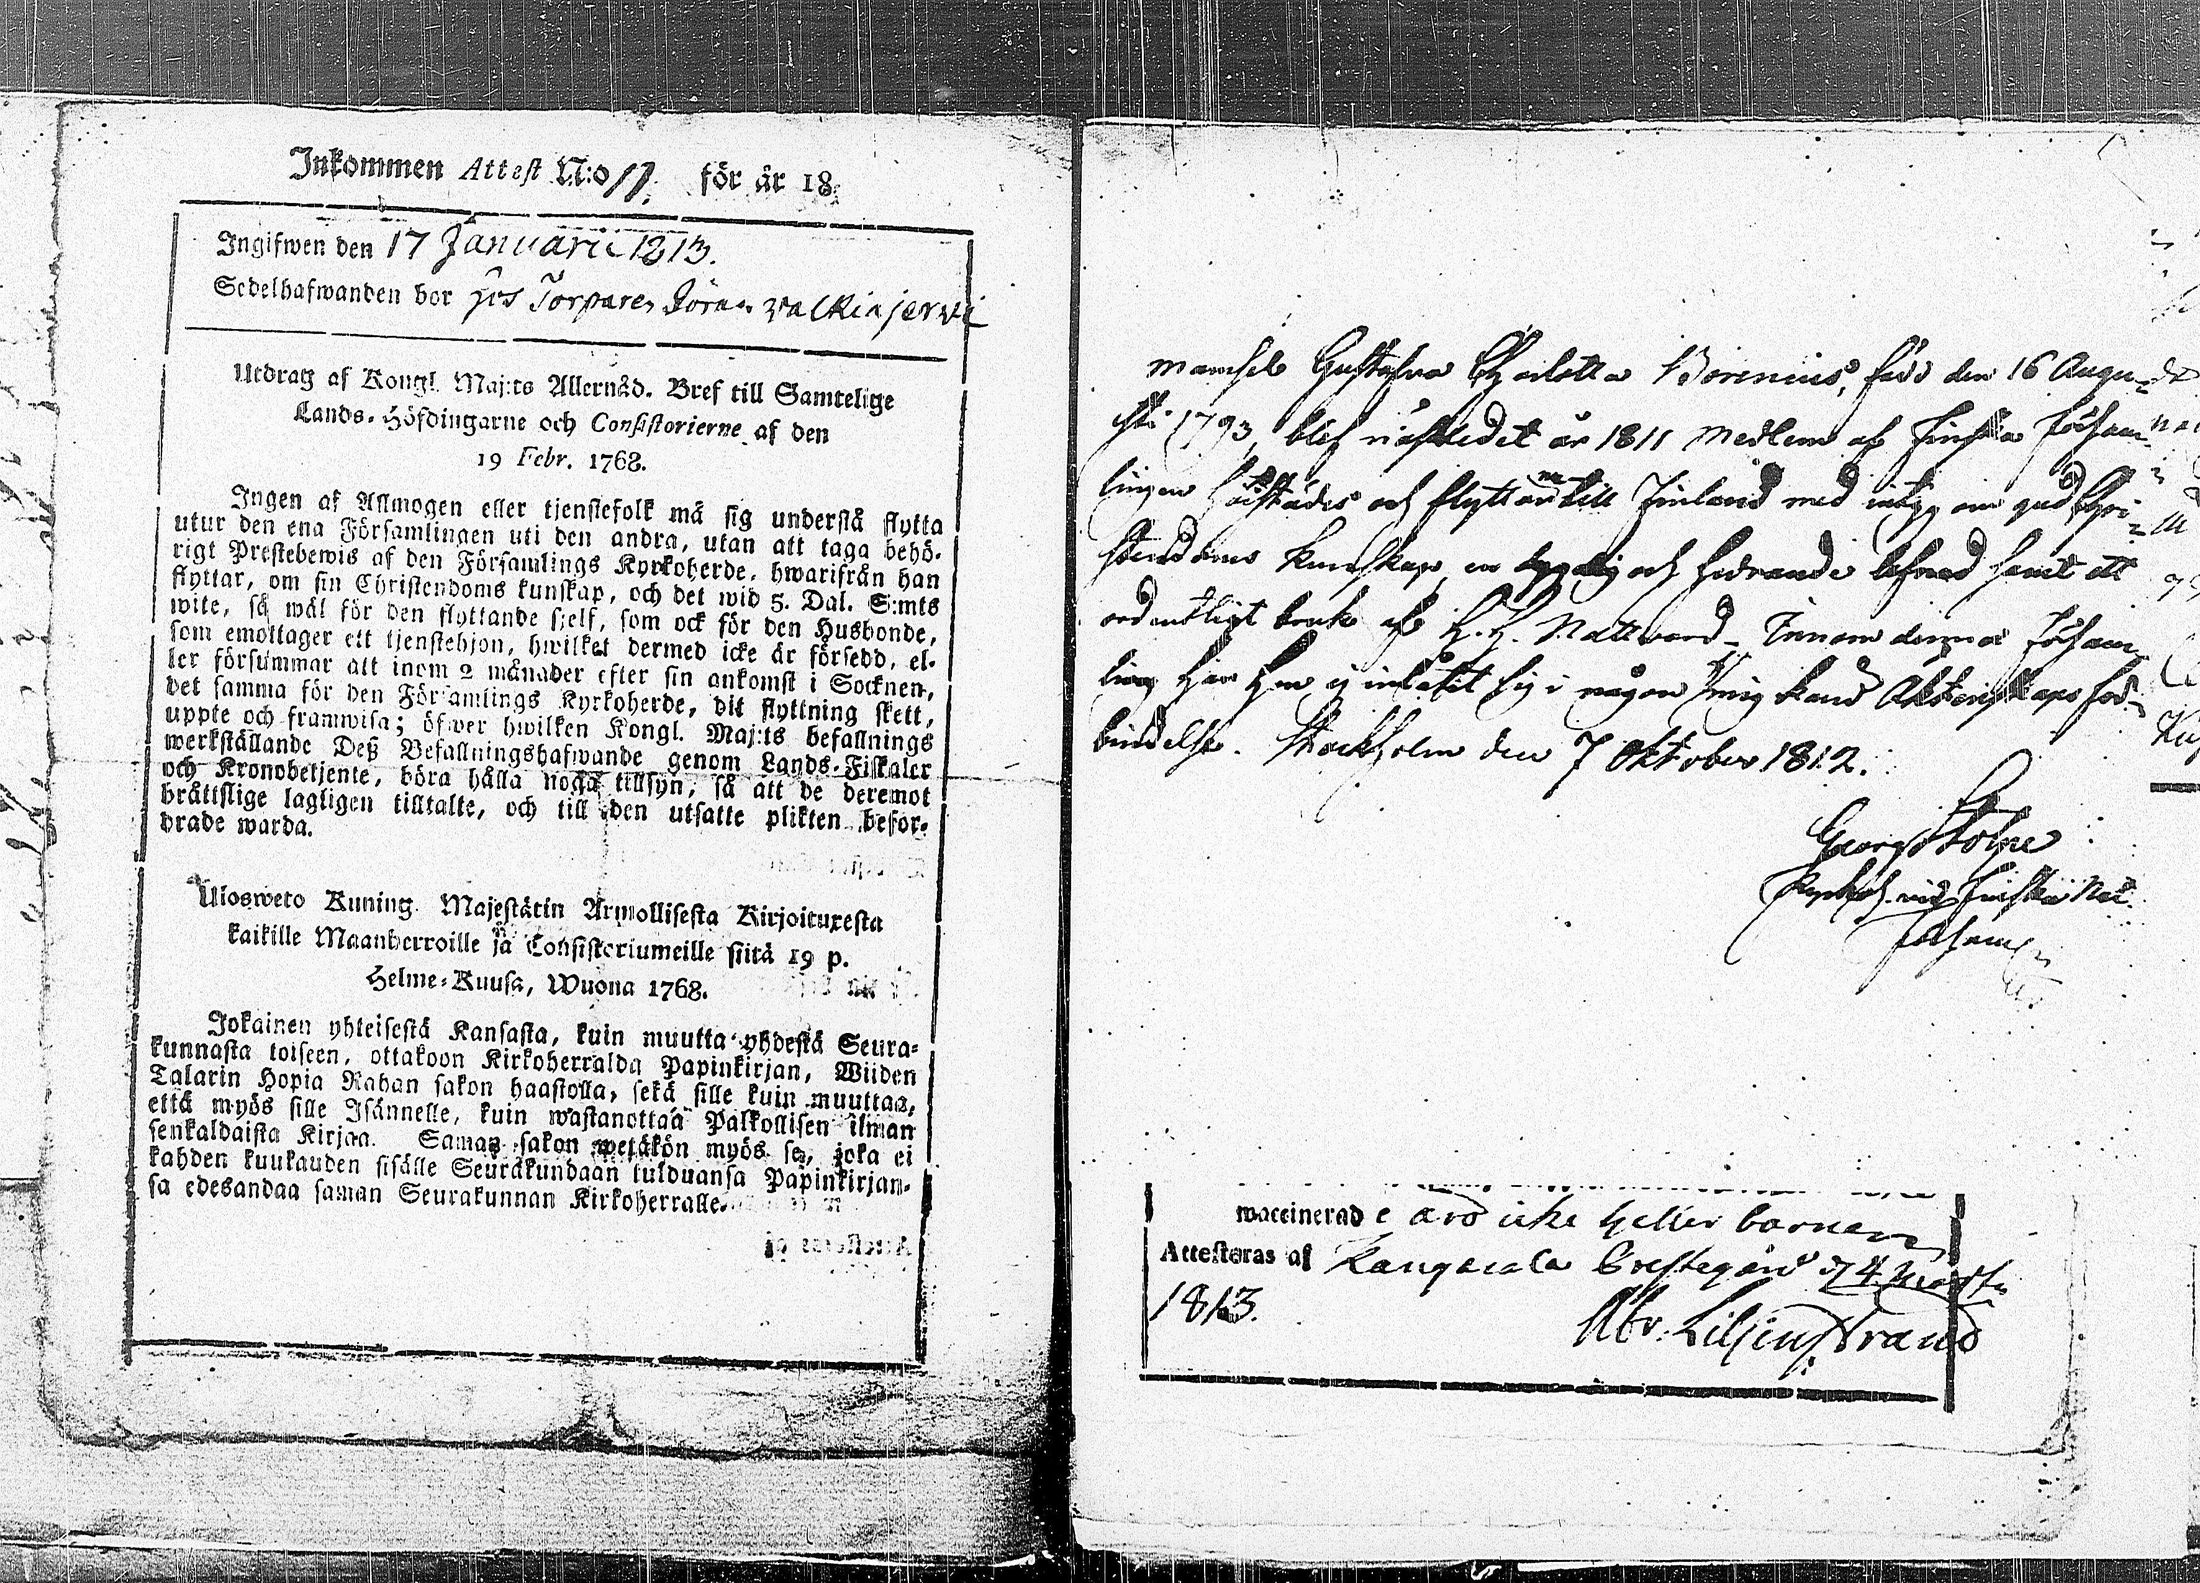 Inkommen Attest N:o 11. för år 18
Ingifwen den 17 Januarii 1813.
Sedelhafwanden bor hos Torparen Jöran valkiajerwi
Utdrag af Kongl. Maj:ts Allernåd. Bref till Samtelige
Lands-Höfdingarne och Consistorierne af den
19 Febr. 1768.
Ingen af Allmogen eller tjenstefolk må sig understå flytta
utur den ena Församlingen uti den andra, utan att taga behö-
rigt Prestebewis af den Församlings Kyrkoherde, hwarifrån han
flyttar, om sin Christendoms kunskap, och det wid 5. Dal. S:mts
wite, så wäl för den flyttande sjelf, som ock för den Husbonde,
som emottager ett tjenstehjon, hwilket dermed icke är försedd, el-
ler försummar att inom 2 månader efter sin ankomst i Socknen,
det samma för den Församlings Kyrkoherde, dit flyttning skett,
uppte och framwisa; öfwer hwilken Kongl. Maj:ts befallnings
werkställande Deß Befallningshafwande genom Lands-Fiskaler
och Kronobetjente, böra hålla noga tillsyn, så att de deremot
bråttslige lagligen tilltalte, och till den utsatte plikten befor-
drade warda.
Ulosweto Kuning. Majestätin Armollisesta Kirjoituxesta
kaikille Maanherroille ja Consistoriumeille siitä 19 p.
Helme-Kuusa, Wuona 1768.
Jokainen yhteisestä Kansasta, kuin muutta yhdestä Seura-
kunnasta toiseen, ottakoon Kirkoherralda Papinkirjan, Wiiden
Talarin Hopia Rahan sakon haastolla, sekä sille kuin muuttaa,
että myös sille Isännelle, kuin wastanottaa Palkollisen ilman
senkaldaista Kirjaa. Saman sakon wetäkön myös se, joka ei
kahden kuukauden sisälle Seurakundaan tulduansa Papinkirjan-
sa edesandaa saman Seurakunnan Kirkoherralle.
Mamsell Gustafva Charlotta Borenius, född den 16 Augu-
sti 1793, blef nästledit år 1811 Medlem af Finska Försam-
lingen härstädes och flyttar nu till Finland med intyg om god Chri-
stendoms kunskap, en dygdig och hedrande lefnad samt ett
ordentligt bruk af H. H. Nattvard. Innom denna Försam-
ling har hon ej inlåtit sig i någon Mig kand Äktenskaps för-
bindelse. Stockholm den 7 Oktober 1812.
Georg Stolpe
Kyrkoh. vid Finska Nat.
Församl
waccinerade äro icke heller barnen
Attesteras af Kangasala Prestegård d 4 Martii
1813.
Abr. Liljenstrand